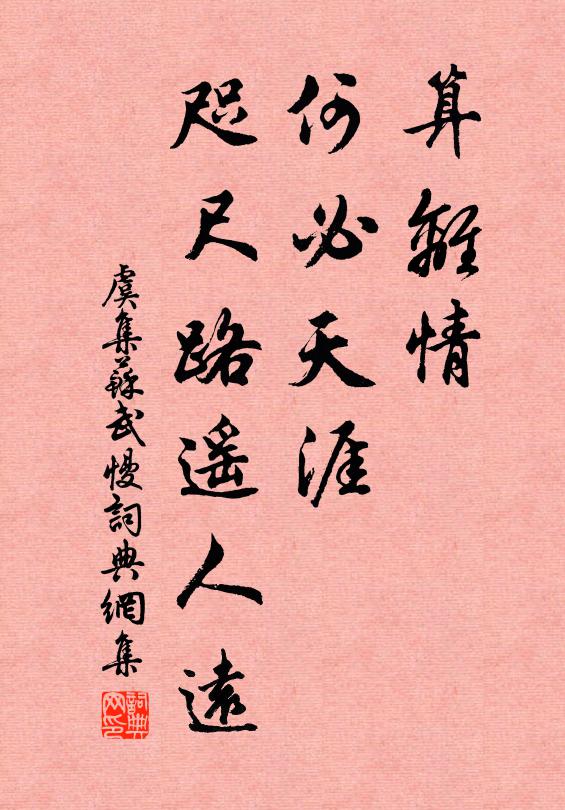 算離情
何必天涯
咫尺路遥人遠
虞集蘇武慢詞典網集
詞典网印